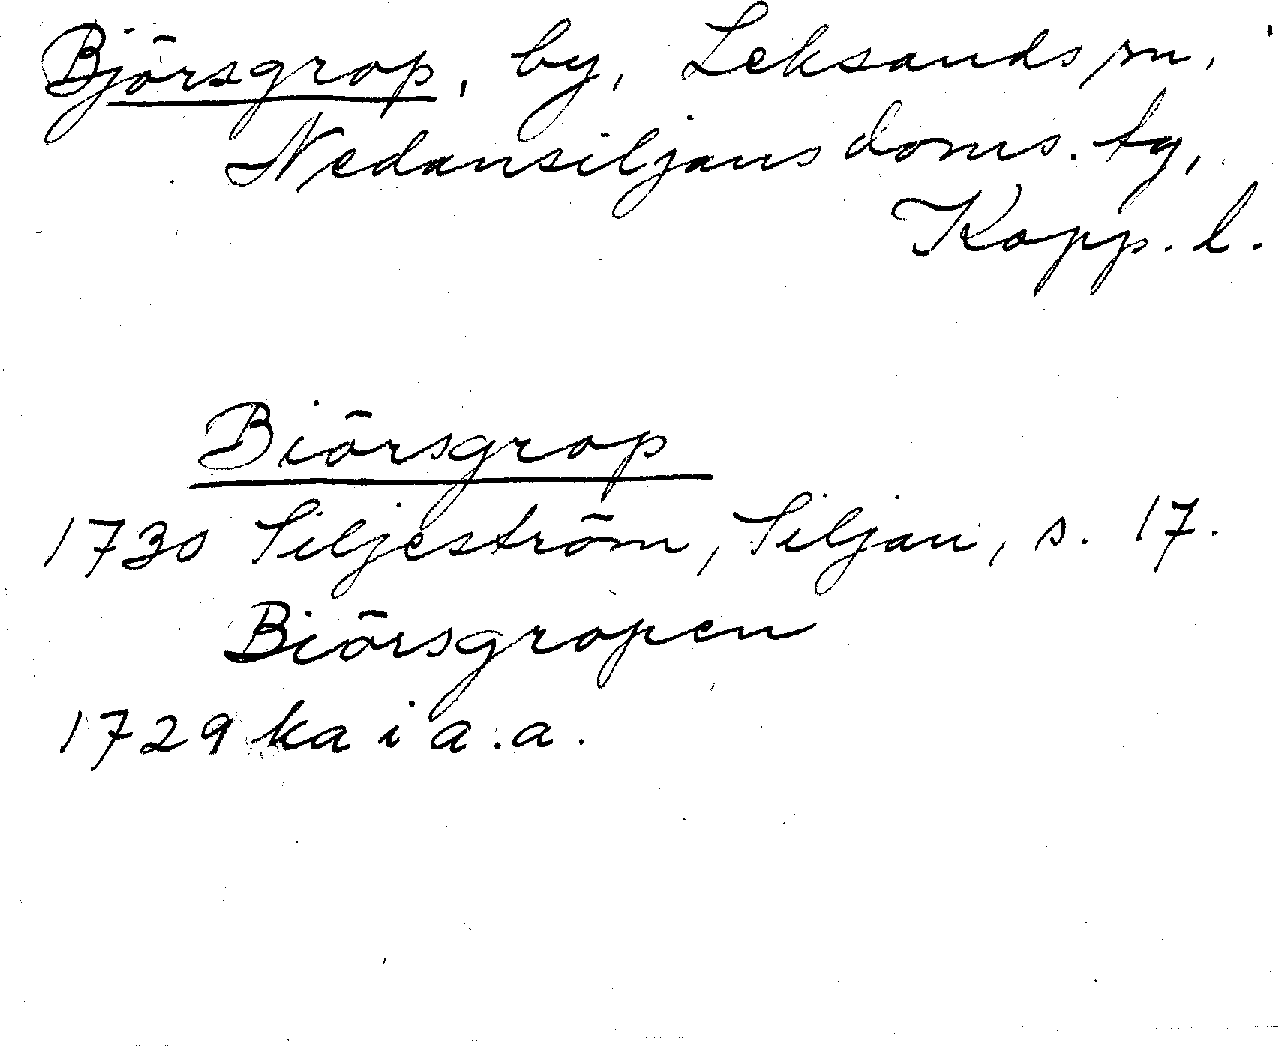 Björsgrop, by, Leksands sn,
Nedansiljans doms. tg,
Kopp. l.
Biörsgrop
1730 Siljeström, Siljan, s. 17.
Biörsgropen
1729 ka i a.a.